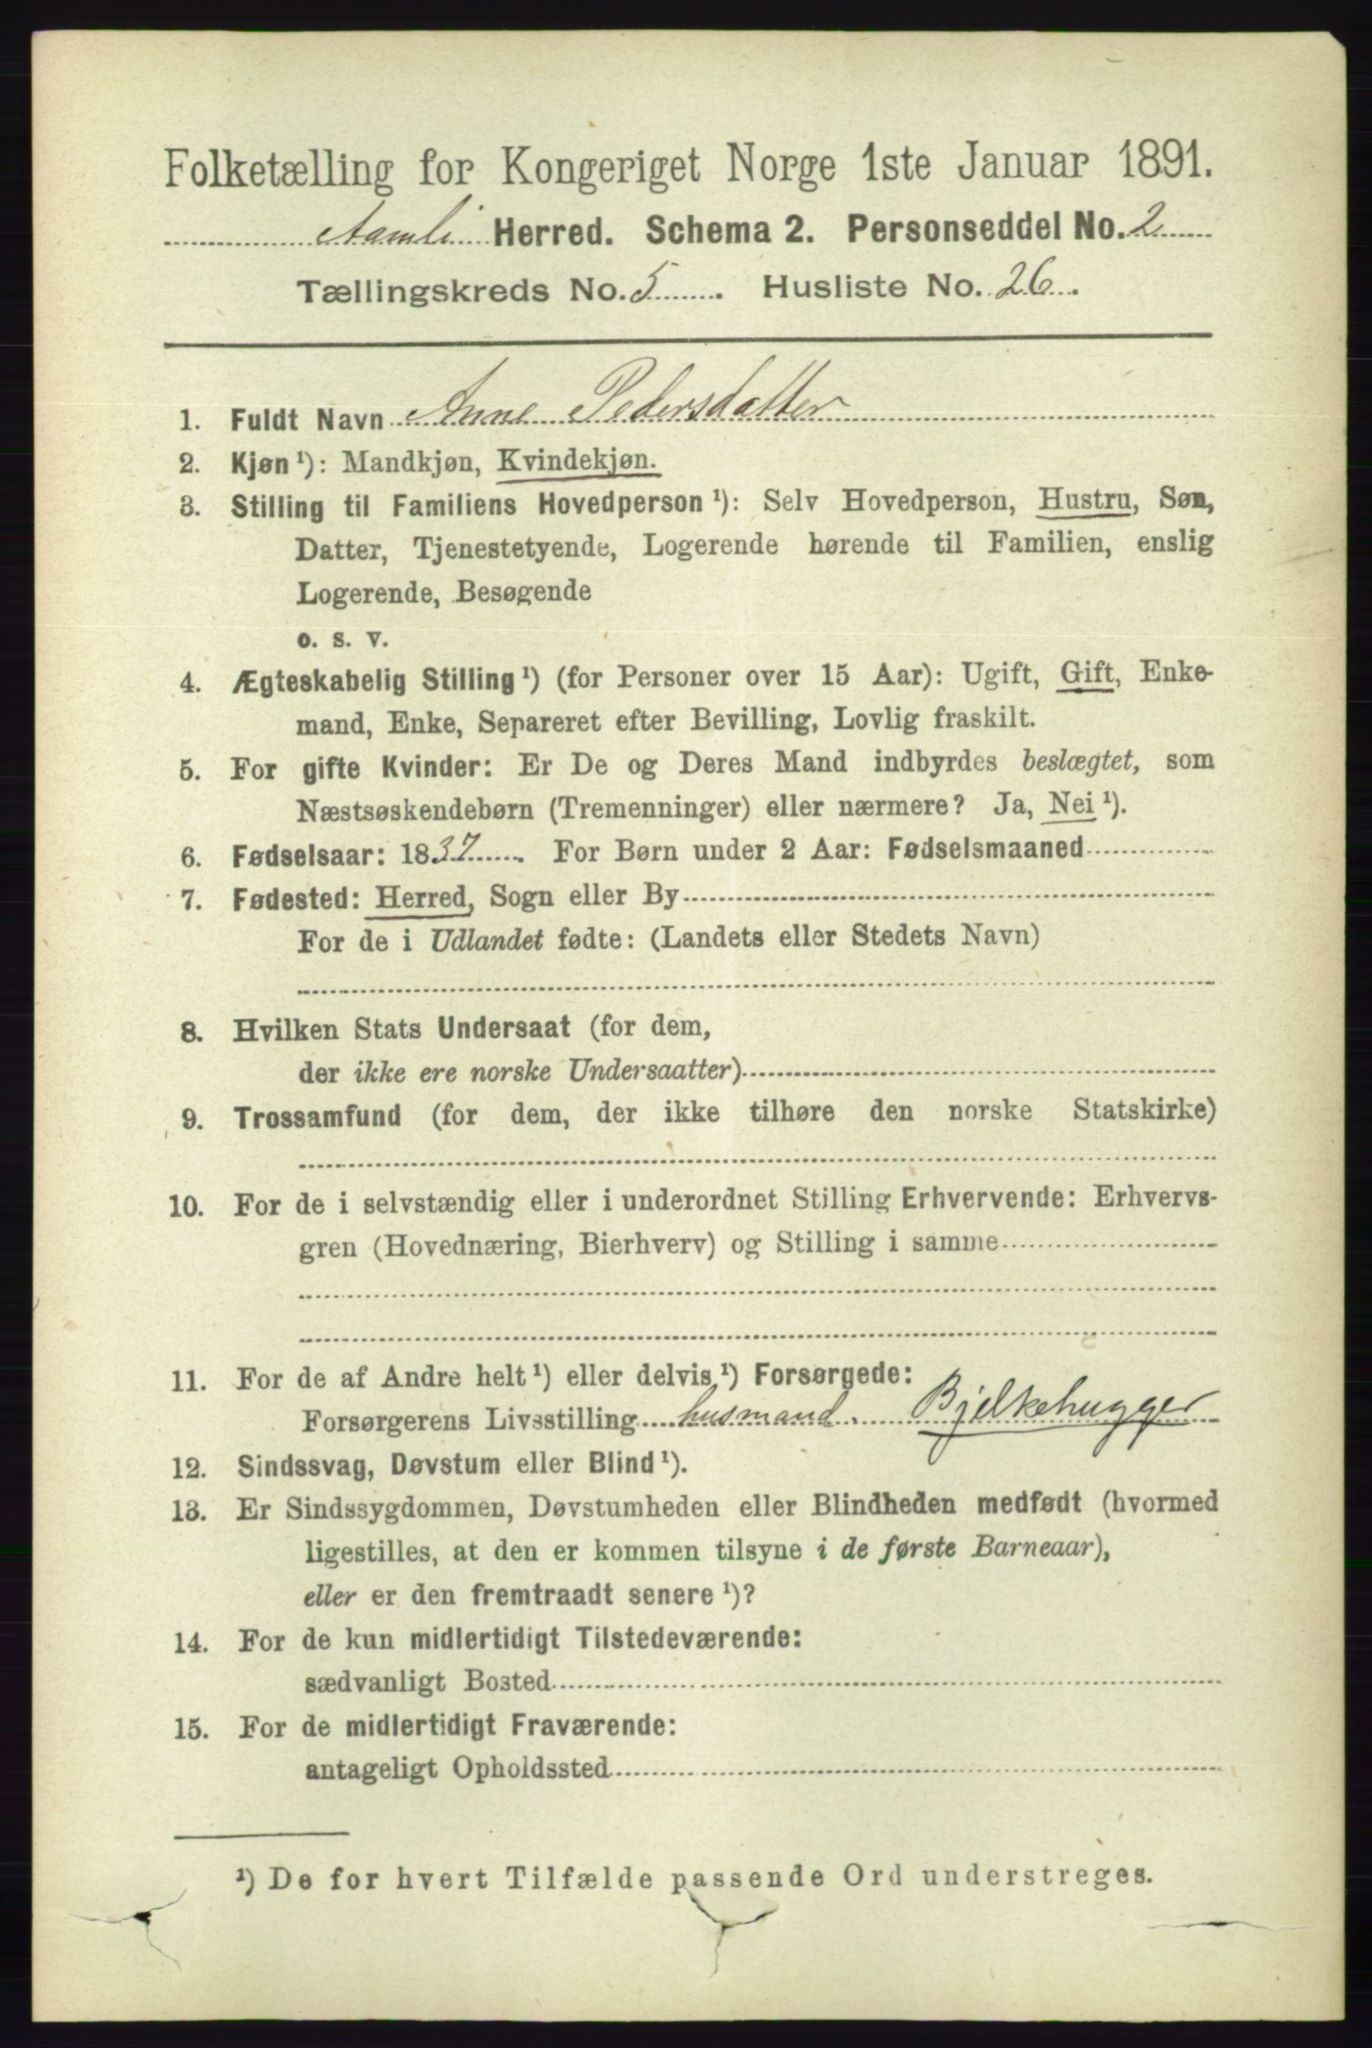 Folketælling for Kongeriget Norge 1ste Januar 1891.
Aamli Herred. Schema 2. Personseddel No. 2
Tællingskreds No. 5. Husliste No. 26.
1. Fuldt Navn Anne Pedersdatter
2. Kjøn¹): Mandkjøn, Kvindekjøn.
3. Stilling til Familiens Hovedperson¹): Selv Hovedperson, Hustru, Søn,
Datter, Tjenestetyende, Logerende hørende til Familien, enslig
Logerende, Besøgende
o. s. v.
4. Ægteskabelig Stilling¹) (for Personer over 15 Aar): Ugift, Gift, Enke-
mand, Enke, Separeret efter Bevilling, Lovlig fraskilt.
5. For gifte Kvinder: Er De og Deres Mand indbyrdes beslægtet, som
Næstsøskendebørn (Tremenninger) eller nærmere? Ja, Nei¹).
6. Fødselsaar: 1837. For Børn under 2 Aar: Fødselsmaaned
7. Fødested: Herred, Sogn eller By
For de i Udlandet fødte: (Landets eller Stedets Navn)
8. Hvilken Stats Undersaat (for dem,
der ikke ere norske Undersaatter)
9. Trossamfund (for dem, der ikke tilhøre den norske Statskirke)
10. For de i selvstændig eller i underordnet Stilling Erhvervende: Erhvervs-
gren (Hovednæring, Bierhverv) og Stilling i samme
11. For de af Andre helt¹) eller delvis¹) Forsørgede:
Forsørgerens Livsstilling husmand. Bjelkehugger
12. Sindssvag, Døvstum eller Blind¹).
13. Er Sindssygdommen, Døvstumheden eller Blindheden medfødt (hvormed
ligestilles, at den er kommen tilsyne i de første Barneaar),
eller er den fremtraadt senere¹)?
14. For de kun midlertidigt Tilstedeværende:
sædvanligt Bosted
15. For de midlertidigt Fraværende:
antageligt Opholdssted
¹) De for hvert Tilfælde passende Ord understreges.